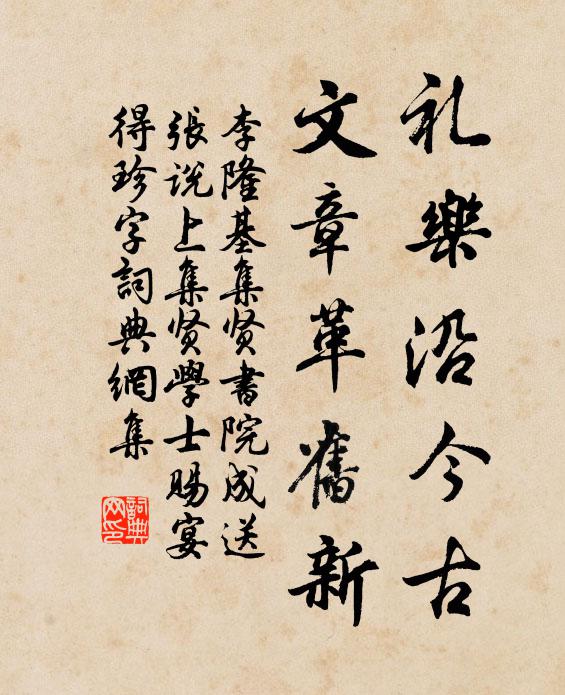 礼樂沿今古
文章革舊新
李隆基集贤書院成送
張说上集贤學士賜宴
得珍字詞典網集
詞典网印